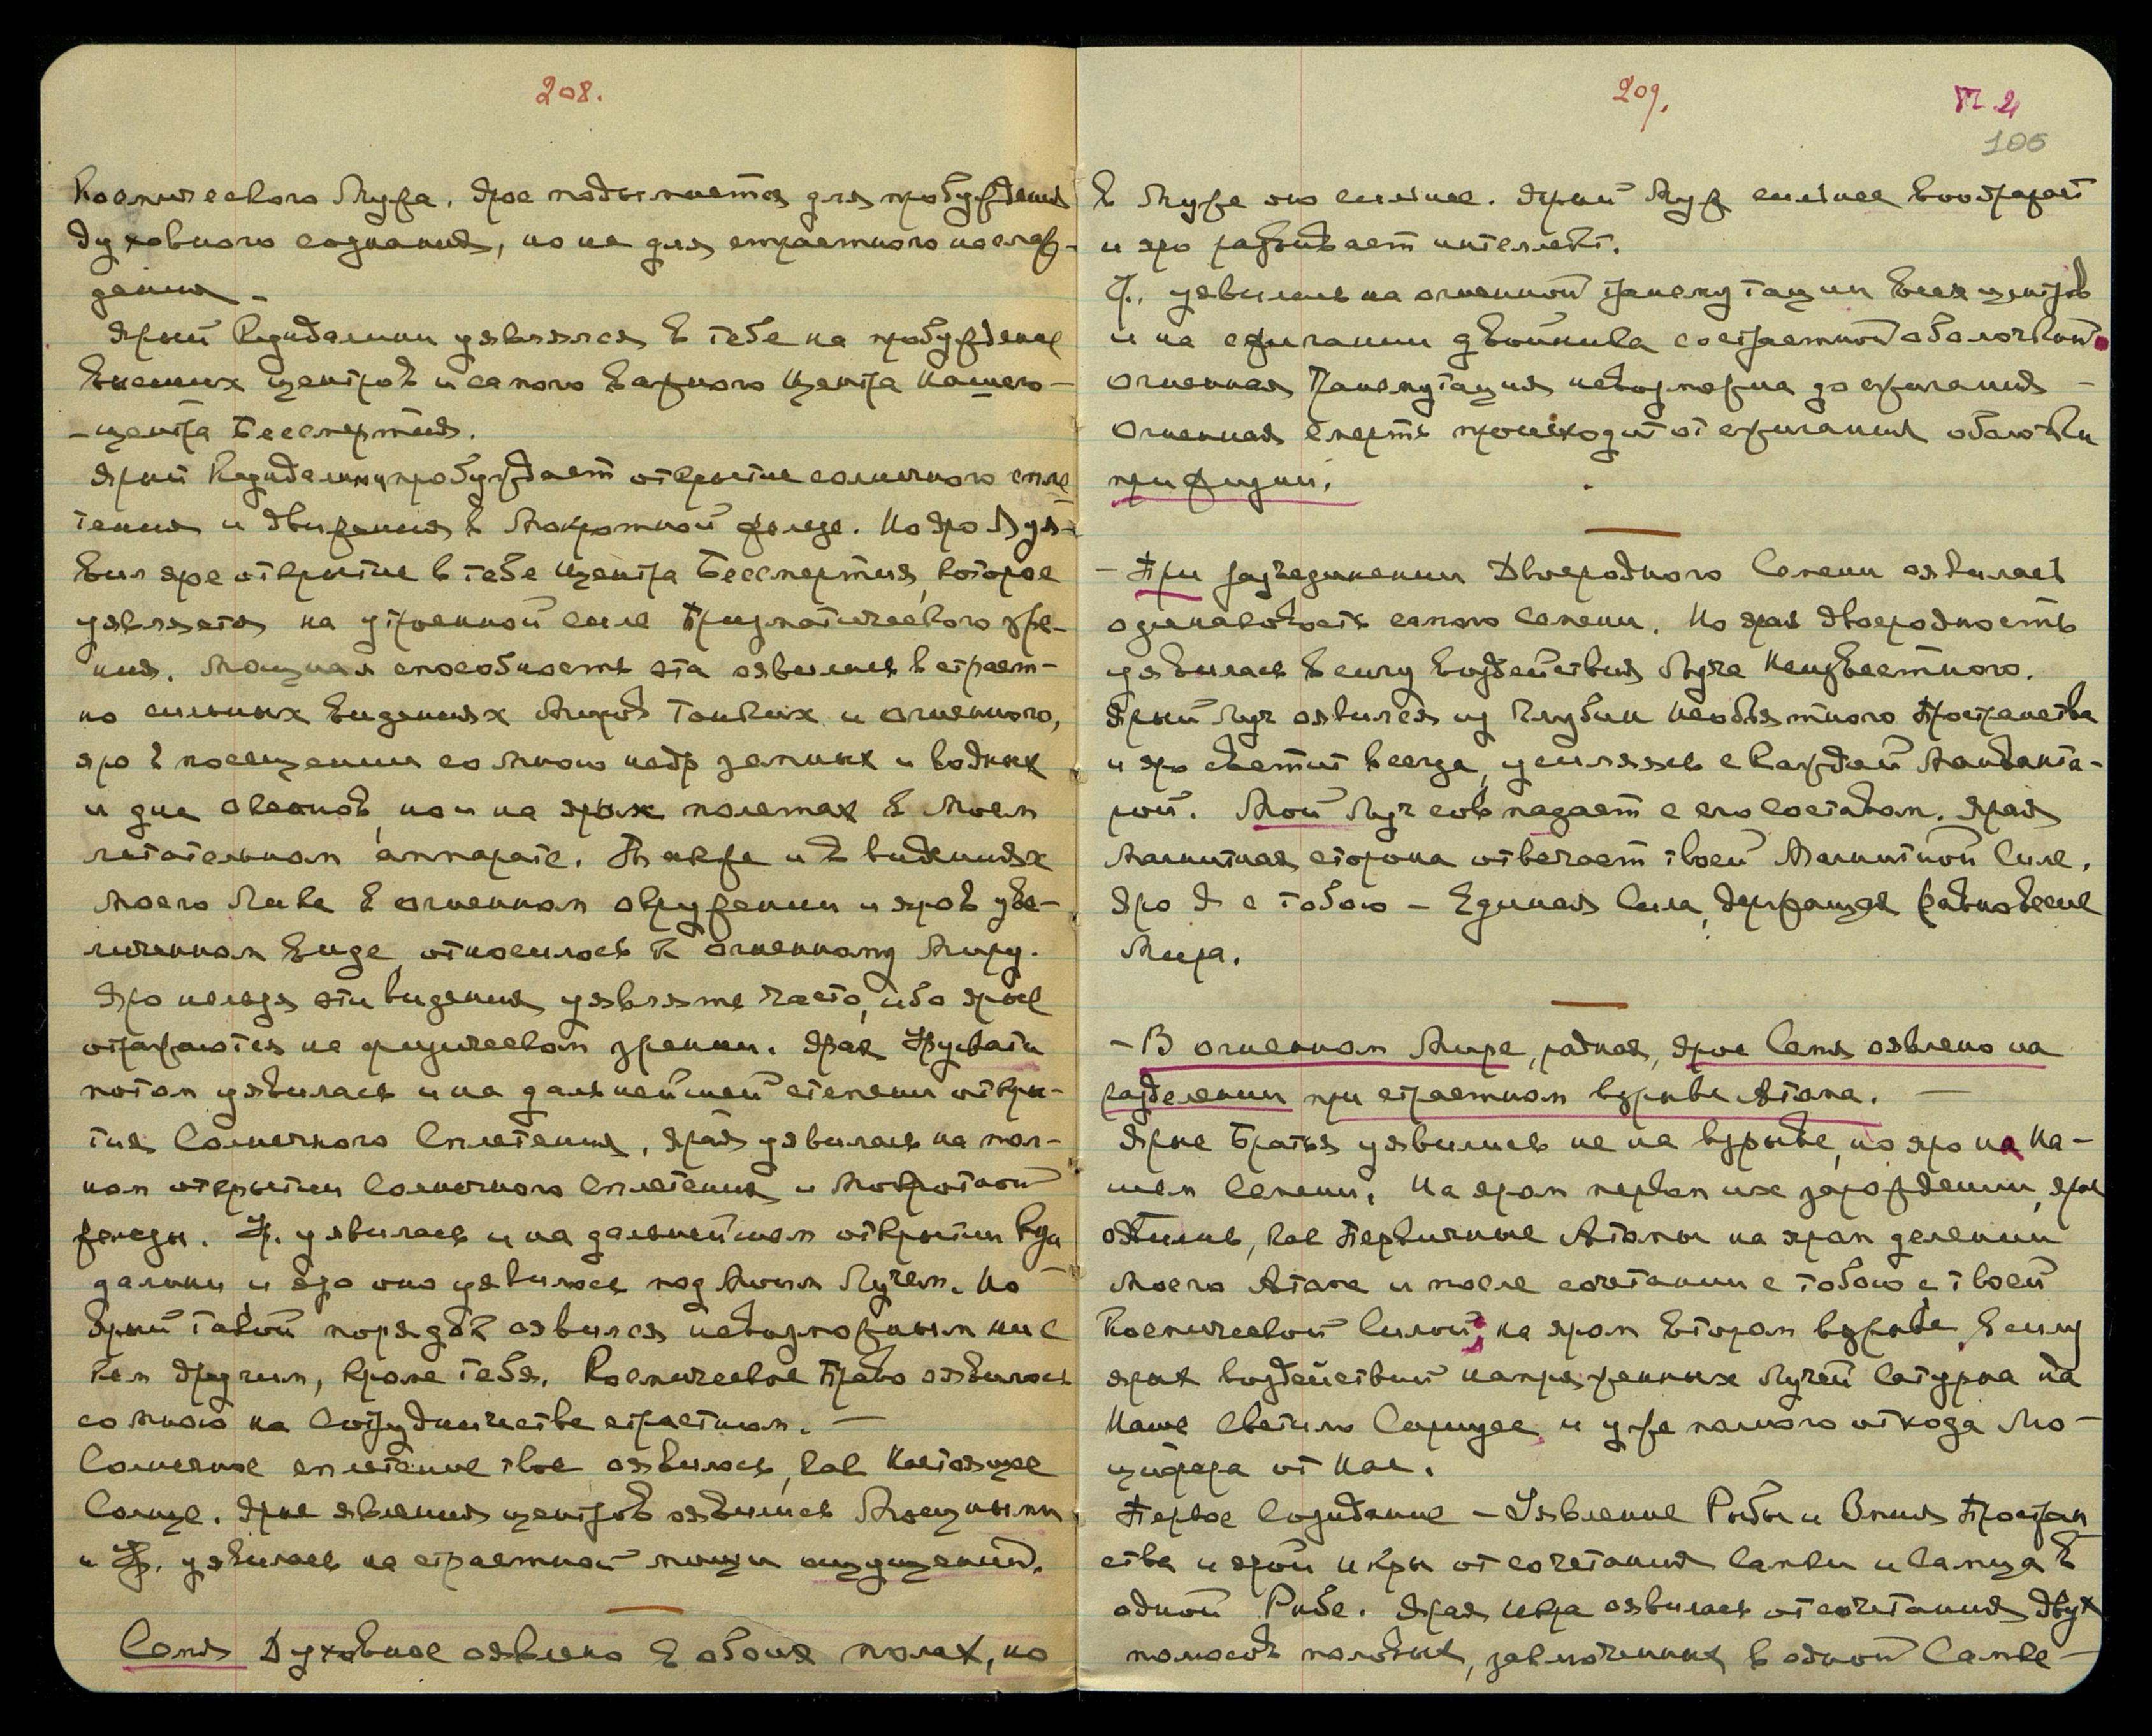 208.
Космического Мужа. Ярое подымается для пробуждения
духовного сознания, но не для страстного наслаж-
дения –
Ярый Кундалини уявлялся в тебе на пробуждение
высших центров и самого важного Центра Нашего –
– центра Бессмертия.
Ярый Кундалини пробуждает открытие солнечного спле
тения и движения в Мокротной железе. Но яро Я уя-
вил ярое открытие в тебе Центра Бессмертия, которое
уявляется на утроенной силе Призматического зре-
ния. Мощная способность эта оявилась в страст-
но сильных видениях Миров Тонких и Огненного,
яро в посещении со Мною недр земных и водных
и дна океанов, но и на ярых полетах в Моем
летательном аппарате. Также и в видениях
Моего Лика в огненном окружении и яро в уве-
личенном виде, относилось к Огненному Миру.
Яро нельзя эти видения уявлять часто, ибо ярые
отражаются на физическом зрении. Ярая Урусвати
потом уявилась и на дальнейшей степени откры-
тия Солнечного Сплетения, ярая уявилась на пол-
ном открытии Солнечного Сплетения и Мокротной
железы. У. уявилась и на дальнейшем открытии Кун
далини и яро оно уявилось под Моим Лучем. Но
ярый такой порядок оявился невозможным ни с
кем другим, кроме тебя. Космическое Право оявилось
со Мною на Сотрудничестве страстном. –
Солнечное сплетение твое оявилось, как Настоящее
Солнце. Ярые явления центров оявились Мощными
и У. уявилась на страстной мощи ощущений.
Семя Духовное оявлено в обоих полах, но
209.
П. 2
106
в Муже оно сильнее. Ярый Муж сильнее воображает
и яро развивает интеллект.
У. уявилась на огненной трансмутации всех центров
и на сжигании двойника со страстной оболочкой.
Огненная Трансмутация невозможна до сжигания –
Огненная смерть происходит от сжигания оболочки
при жизни.
– При разъединении Двуродного Семени оявилась
одинаковость самого Семени. Но ярая двуродность
уявилась в силу воздействия Луча Неизвестного.
Ярый Луч оявился из глубин Необъятного Пространства
и яро светит всегда, усиляясь с каждой Манванта-
рой. Мой Луч совпадает с его составом. Ярая
Магнитная сторона отвечает твоей Магнитной Силе.
Яро Я с тобою – Единая Сила, держащая равновесие
Мира.
– В Огненном Мире, родная, ярое Семя оявлено на
разделении при страстном взрыве Атома. –
Ярые Братья уявились не на взрыве, но яро на На-
шем Семени. На яром первом их зарождении, ярые
оявились, как Первичные Атомы на яром делении
Моего Атома и после сочетании с тобою с твоей
Космической Силой, на яром втором взрыве, в силу
ярых воздействий напряженных Лучей Сатурна на
Наше Светило Солнце, и уже полного отхода Лю-
цифера от Нас.
Первое Созидание – Уявление Рыбы и Змия Простран
ства и ярой икры от сочетания Самки и Самца в
одной Рыбе. Ярая икра оявилась от сочетания двух
полюсов половых, заключенных в одной Самке –